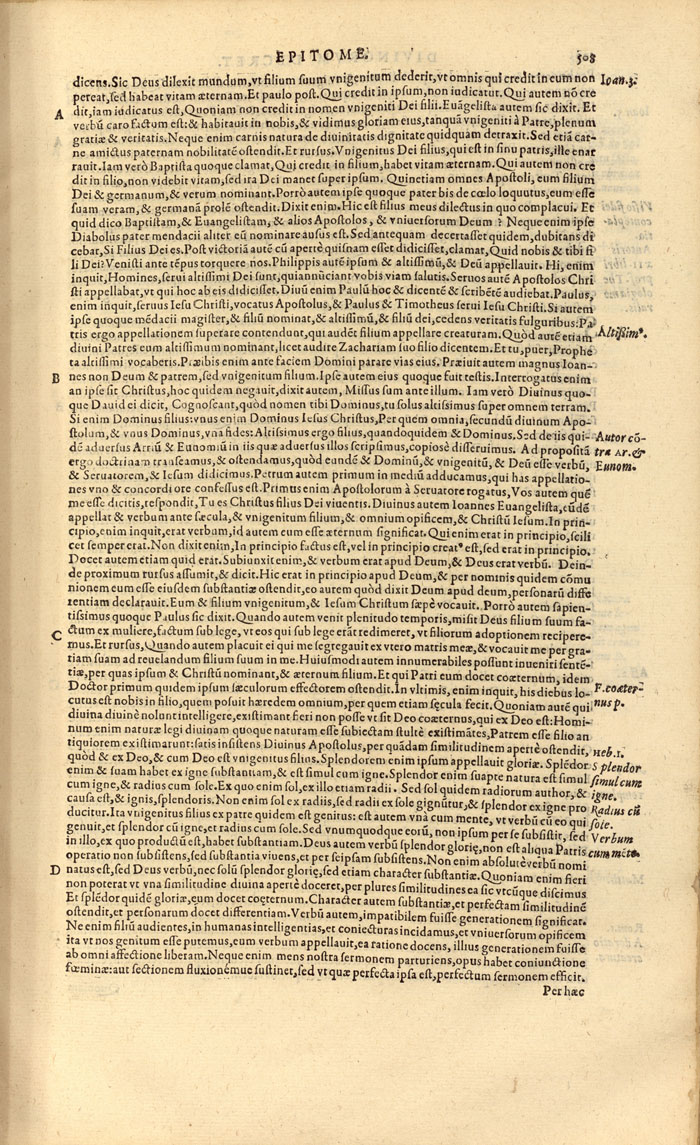 EPITOME. 508
dicens. Sic Deus dilexit mundum, vt filium suum vnigenitum dederit, vt omnis qui credit in eum non Ioan.3.
pereat, sed habeat vitam æternam. Et paulo post. Qui credit in ipsum, non iudicatur. Qui autem nō cre
A dit, iam iudicatus est, Quoniam non credit in nomen vnigeniti Dei filii. Euāgelista autem sic dixit. Et
verbū caro factum est: & habitauit in nobis, & vidimus gloriam eius, tanquā vnigeniti à Patre, plenum
gratiæ & veritatis. Neque enim carnis natura de diuinitatis dignitate quidquam detraxit. Sed etiā car-
ne amictus paternam nobilitatē ostendit. Et rursus. Vnigenitus Dei filius, qui est in sinu patris, ille enar
rauit. Iam verò Baptista quoque clamat, Qui credit in filium, habet vitam æternam. Qui autem non cre
dit in filio, non videbit vitam, sed ira Dei manet super ipsum. Quinetiam omnes Apostoli, eum filium
Dei & germanum, & verum nominant. Porrò autem ipse quoque pater bis de cœlo loquutus, eum esse
suam veram, & germanā prolē ostendit. Dixit enim. Hic est filius meus dilectus in quo complacui. Et
quid dico Baptistam, & Euangelistam, & alios Apostolos, & vniuersorum Deum? Neque enim ipse
Diabolus pater mendacii aliter eū nominare ausus est. Sed antequam decertasset quidem, dubitans di
cebat, Si Filius Dei es. Post victoriā autē cū apertè quisnam esset didicisset, clamat, Quid nobis & tibi fi
li Dei? Venisti ante tēpus torquere nos. Philippis autē ipsum & altissimū, & Deū appellauit. Hi, enim
inquit, Homines, serui altissimi Dei sunt, qui annūciant vobis viam salutis. Seruos autē Apostolos Chri
sti appellabat, vt qui hoc ab eis didicisset. Diuū enim Paulū hoc & dicentē & scribētē audiebat. Paulus,
enim inquit, seruus Iesu Christi, vocatus Apostolus, & Paulus & Timotheus serui Iesu Christi. Si autem
ipse quoque mēdacii magister, & filiū nominat, & altissimū, & filiū dei, cedens veritatis fulguribus: Pa
tris ergo appellationem superare contendunt, qui audēt filium appellare creaturam. Quòd autē etiam Altissimꝰ.
diuini Patres eum altissimum nominant, licet audire Zachariam suo filio dicentem. Et tu, puer, Prophe
ta altissimi vocaberis. Præibis enim ante faciem Domini parare vias eius. Præiuit autem magnus Ioan-
B nes non Deum & patrem, sed vnigenitum filium. Ipse autem eius quoque fuit testis. Interrogatus enim
an ipse sit Christus, hoc quidem negauit, dixit autem, Missus sum ante illum. Iam verò Diuinus quo-
que Dauid ei dicit, Cognoscant, quòd nomen tibi Dominus, tu solus altissimus super omnem terram.
Si enim Dominus filius: vnus enim Dominus Iesus Christus, Per quem omnia, secundū diuinum Apo-
stolum, & vnus Dominus, vna fides: Altissimus ergo filius, quandoquidem & Dominus. Sed de iis qui- Autor cō-
dē aduersus Arriū & Eunomiū in iis quæ aduersus illos scripsimus, copiosè disseruimus. Ad propositā tra Ar. &
ergo doctrinam transeamus, & ostendamus, quòd eundē & Dominū, & vnigenitū, & Deū esse verbū, Eunom.
& Seruatorem, & Iesum didicimus. Petrum autem primum in mediū adducamus, qui has appellatio-
nes vno & concordi ore confessus est. Primus enim Apostolorum à Seruatore rogatus, Vos autem quē
me esse dicitis, respondit, Tu es Christus filius Dei viuentis. Diuinus autem Ioannes Euangelista, eūdē
appellat & verbum ante sæcula, & vnigenitum filium, & omnium opificem, & Christū Iesum. In prin-
cipio, enim inquit, erat verbum, id autem eum esse æternum significat. Qui enim erat in principio, scili
cet semper erat. Non dixit enim, In principio factus est, vel in principio creatꝰ est, sed erat in principio.
Docet autem etiam quid erat. Subiunxit enim, & verbum erat apud Deum, & Deus erat verbū. Dein-
de proximum rursus assumit, & dicit. Hic erat in principio apud Deum, & per nominis quidem cōmu
nionem eum esse eiusdem substantiæ ostendit, eo autem quòd dixit Deum apud deum, personarū diffe
rentiam declarauit. Eum & filium vnigenitum, & Iesum Christum sæpè vocauit. Porrò autem sapien-
tissimus quoque Paulus sic dixit. Quando autem venit plenitudo temporis, misit Deus filium suum fa-
C ctum ex muliere, factum sub lege, vt eos qui sub lege erāt redimeret, vt filiorum adoptionem recipere-
mus. Et rursus, Quando autem placuit ei qui me segregauit ex vtero matris meæ, & vocauit me per gra-
tiam suam ad reuelandum filium suum in me. Huiusmodi autem innumerabiles possunt inueniri sentē-
tiæ, per quas ipsum & Christū nominant, & æternum filium. Et qui Patri eum docet coæternum, idem
Doctor primum quidem ipsum sæculorum effectorem ostendit. In vltimis, enim inquit, his diebus lo- F. coæter-
cutus est nobis in filio, quem posuit hæredem omnium, per quem etiam sęcula fecit. Quoniam autē qui nus p.
diuina diuinè nolunt intelligere, existimant fieri non posse vt sit Deo coæternus, qui ex Deo est: Homi-
num enim naturæ legi diuinam quoque naturam esse subiectam stultè existimātes, Patrem esse filio an
tiquiorem existimarunt: satis insistens Diuinus Apostolus, per quādam similitudinem apertè ostendit, Heb.1.
quòd & ex Deo, & cum Deo est vnigenitus filius. Splendorem enim ipsum appellauit gloriæ. Splēdor Splendor
enim & suam habet ex igne substantiam, & est simul cum igne. Splendor enim suapte natura est simul simul cum
cum igne, & radius cum sole. Ex quo enim sol, ex illo etiam radii. Sed sol quidem radiorum author, & igne.
causa est, & ignis, splendoris. Non enim sol ex radiis, sed radii ex sole gignūtur, & splendor ex igne pro Radius cū
ducitur. Ita vnigenitus filius ex patre quidem est genitus: est autem vnà cum mente, vt verbū cū eo qui sole.
genuit, et splendor cū igne, et radius cum sole. Sed vnumquodque eorū, non ipsum per se subsistit, sed Verbum
in illo, ex quo productū est, habet substantiam. Deus autem verbū splendor glorię, non est aliqua Patris cum mēte.
operatio non subsistens, sed substantia viuens, et per seipsam subsistens. Non enim absolutè verbū nomi
D natus est, sed Deus verbū, nec solū splendor glorię, sed etiam character substantiæ. Quoniam enim fieri
non poterat vt vna similitudine diuina apertè doceret, per plures similitudines ea sic vtcūque discimus
Et splēdor quidē gloriæ, eum docet coęternum. Character autem substantiæ, et perfectam similitudinē
ostendit, et personarum docet differentiam. Verbū autem, impatibilem fuisse generationem significat.
Ne enim filiū audientes, in humanas intelligentias, et coniecturas incidamus, et vniuersorum opificem
ita vt nos genitum esse putemus, eum verbum appellauit, ea ratione docens, illius generationem fuisse
ab omni affectione liberam. Neque enim mens nostra sermonem parturiens, opus habet coniunctione
fœminæ: aut sectionem fluxionémue sustinet, sed vt quæ perfecta ipsa est, perfectum sermonem efficit.
Per hæc